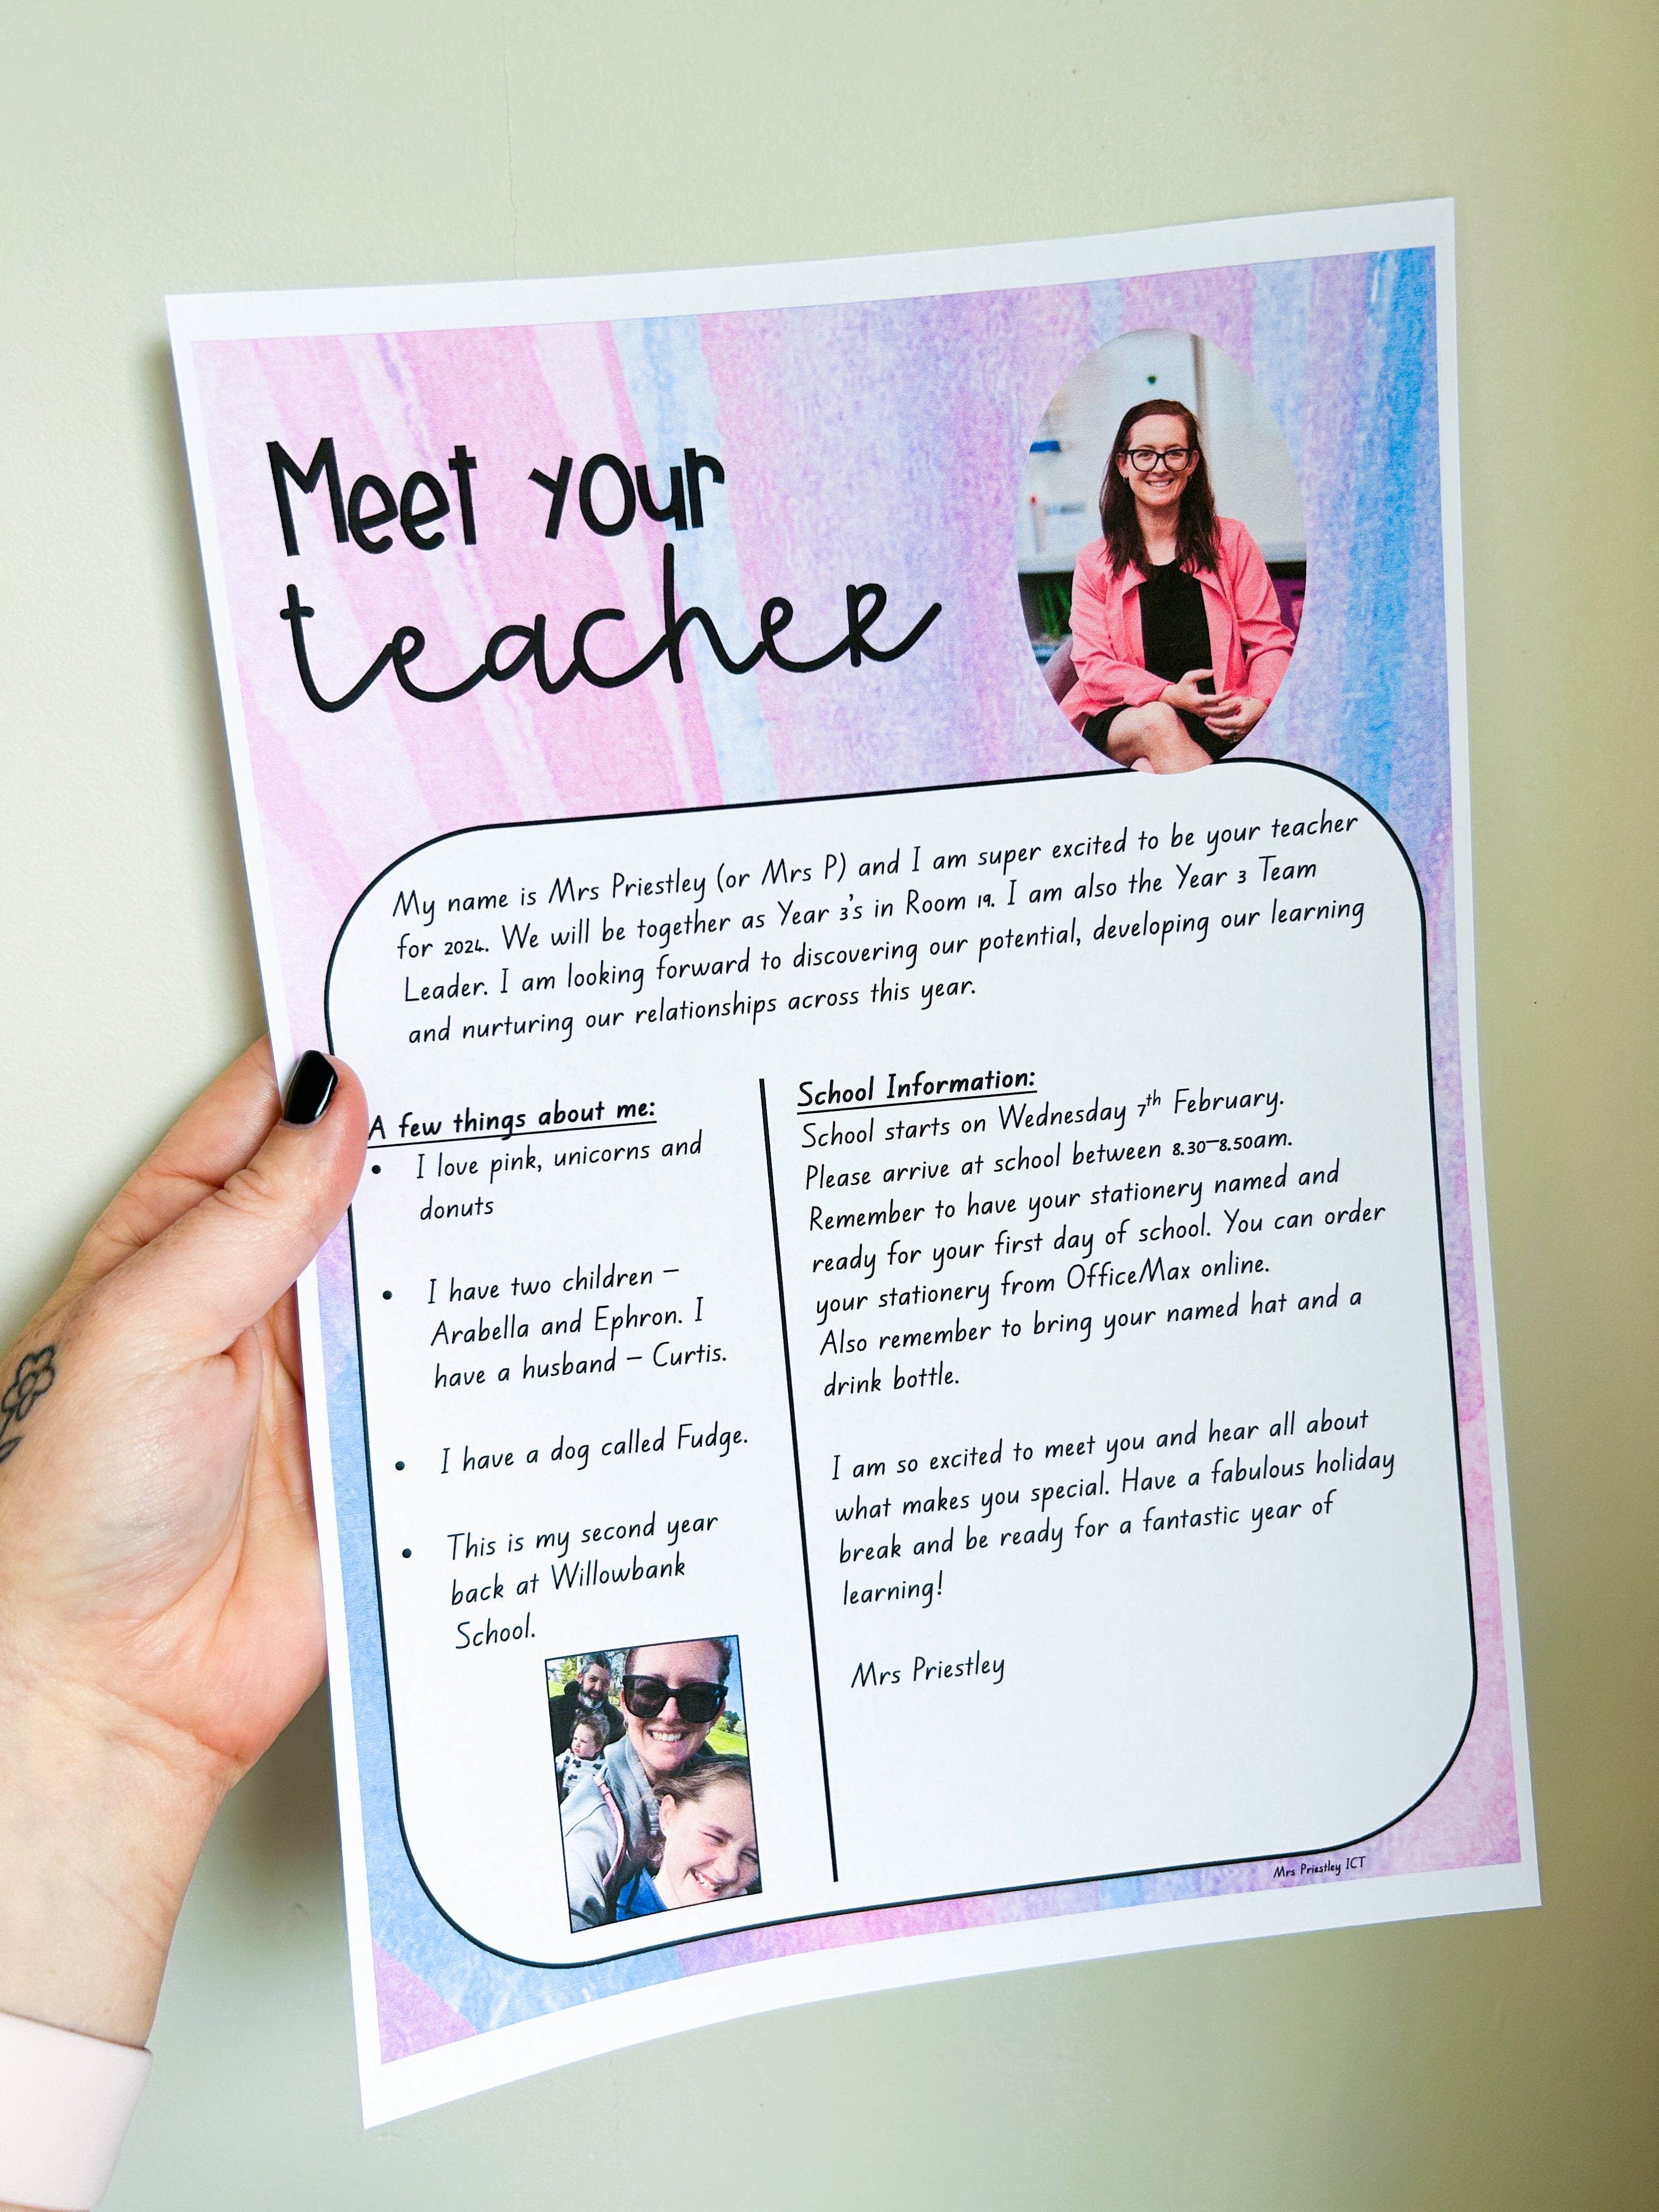 Meet your
teacher
My name is Mrs Priestley (or Mrs P) and I am super excited to be your teacher
for 2024. We will be together as Year 3's in Room 19. I am also the Year 3 Team
Leader. I am looking forward to discovering our potential, developing our learning
and nurturing our relationships across this year.
A few things about me:
• I love pink, unicorns and
donuts
• I have two children –
Arabella and Ephron. I
have a husband – Curtis.
• I have a dog called Fudge.
• This is my second year
back at Willowbank
School.
School Information:
School starts on Wednesday 7th February.
Please arrive at school between 8.30–8.50am.
Remember to have your stationery named and
ready for your first day of school. You can order
your stationery from OfficeMax online.
Also remember to bring your named hat and a
drink bottle.
I am so excited to meet you and hear all about
what makes you special. Have a fabulous holiday
break and be ready for a fantastic year of
learning!
Mrs Priestley
Mrs Priestley ICT